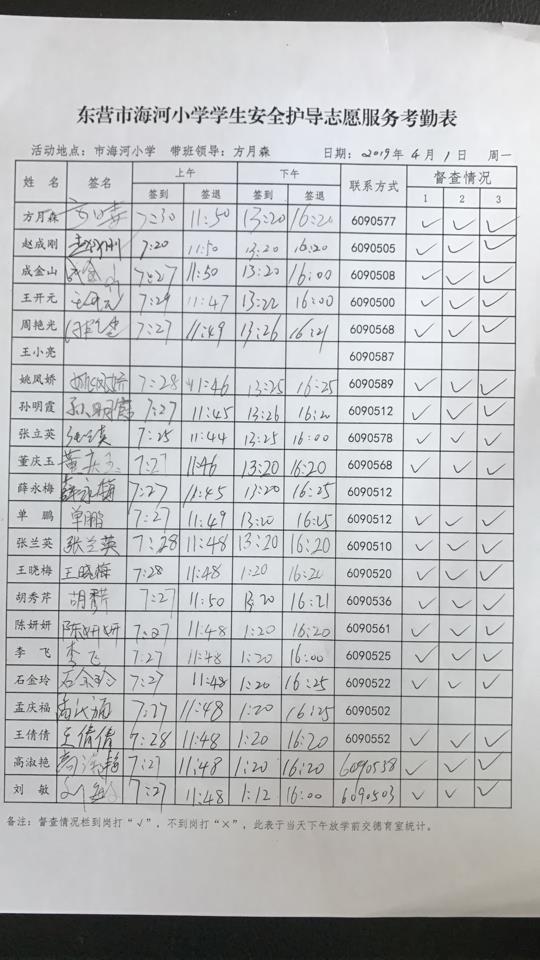 东营市海河小学学生安全护导志愿服务考勤表
活动地点：市海河小学 带班领导：方月森 日期：2019年4月1日 周一
姓 名 签名 上午 下午 联系方式 督查情况
签到 签退 签到 签退 1 2 3
方月森 7:30 11:50 13:20 16:20 6090577 ✓ ✓ ✓
赵成刚 赵成刚 7:20 11:50 13:20 16:20 6090505 ✓ ✓ ✓
成金山 成金山 7:27 11:50 13:20 16:00 6090508 ✓ ✓ ✓
王开元 王开元 7:29 11:47 13:22 16:00 6090500 ✓ ✓ ✓
周艳光 7:27 11:49 13:26 16:21 6090568 ✓ ✓ ✓
王小亮 6090587
姚凤娇 姚凤娇 7:28 11:46 13:25 16:25 6090589 ✓ ✓ ✓
孙明霞 孙明霞 7:27 11:45 13:26 16:20 6090512 ✓ ✓ ✓
张立英 7:25 11:44 13:25 16:00 6090578 ✓ ✓ ✓
董庆玉 董庆玉 7:27 11:46 13:20 16:20 6090568 ✓ ✓ ✓
薛永梅 薛永梅 7:27 11:45 13:20 16:25 6090512
单 鹏 单鹏 7:27 11:49 13:20 16:25 6090512 ✓ ✓ ✓
张兰英 张兰英 7:28 11:48 13:20 16:20 6090510 ✓ ✓ ✓
王晓梅 王晓梅 7:28 11:48 1:20 16:20 6090520 ✓ ✓ ✓
胡秀芹 胡秀芹 7:27 11:50 13:20 16:21 6090536 ✓ ✓ ✓
陈妍妍 陈妍妍 7:27 11:48 1:20 16:20 6090561 ✓ ✓ ✓
李 飞 李飞 7:27 11:48 1:20 16:00 6090525 ✓ ✓ ✓
石金玲 石金玲 7:27 11:48 1:20 16:25 6090522 ✓ ✓ ✓
孟庆福 7:27 11:48 1:20 16:25 6090502
王倩倩 王倩倩 7:28 11:48 1:20 16:20 6090552 ✓ ✓ ✓
高淑艳 高淑艳 7:27 11:48 1:20 16:20 6090558 ✓ ✓ ✓
刘 敏 刘敏 7:27 11:48 1:12 16:00 6090503 ✓ ✓ ✓
备注：督查情况栏到岗打“√”，不到岗打“×”，此表于当天下午放学前交德育室统计。